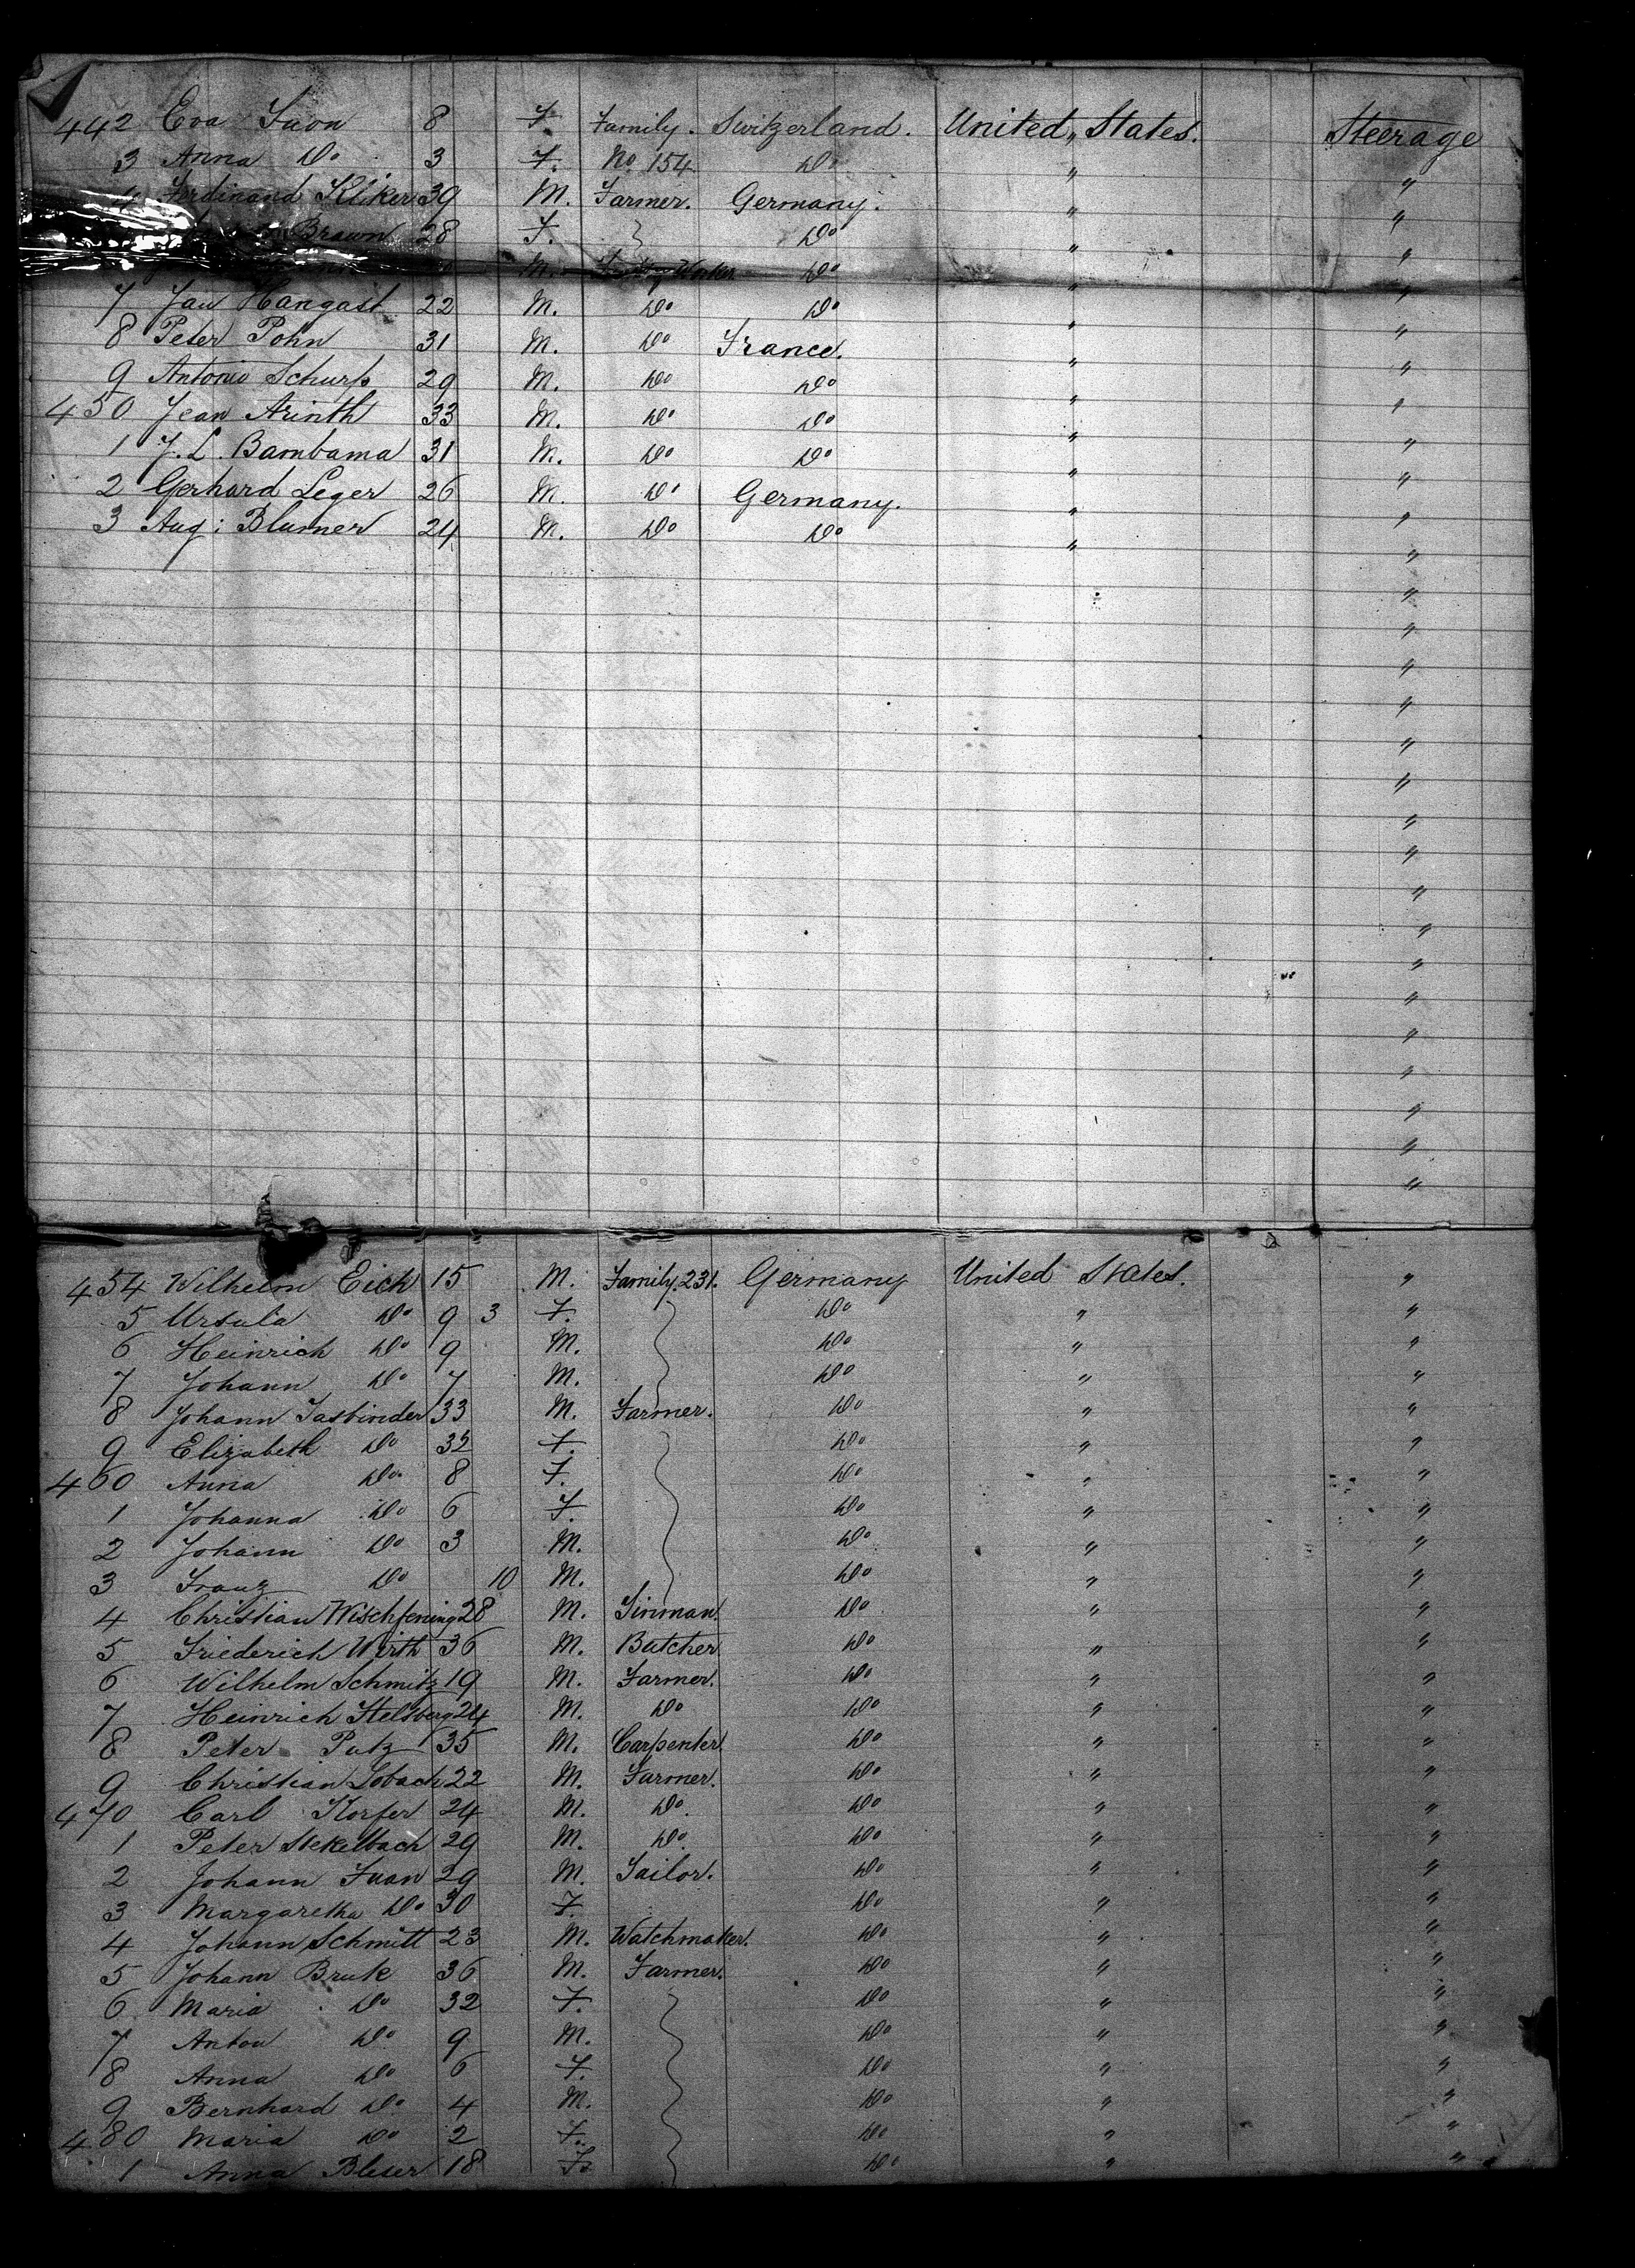 442 Eva Savon 8 F. Family. Switzerland. United States. Steerage
3 Anna Do 3 F. No 154 Do " "
4 Ferdinand Kliker 39 M. Farmer. Germany. " "
Brawn 28 F. Do " "
M. Worker Do " "
7 Jan Hangast 22 M. Do Do " "
8 Peter Pohn 31 M. Do France. " "
9 Antonio Schurp 29 M. Do Do " "
450 Jean Arinth 33 M. Do Do " "
1 J. L. Bambama 31 M. Do Do " "
2 Gerhard Leger 26 M. Do Germany. " "
3 Aug: Blumer 24 M. Do Do " "
454 Wilhelm Eich 15 M. Family. 231. Germany United States. "
5 Ursula Do 9 3 F. Do " "
6 Heinrich Do 9 M. Do " "
7 Johann Do 7 M. Do " "
8 Johann Tasbinder 33 M. Farmer. Do " "
9 Elizabeth Do 32 F. Do " "
460 Anna Do 8 F. Do " "
1 Johanna Do 6 F. Do " "
2 Johann Do 3 M. Do " "
3 Franz Do 10 M. Do " "
4 Christian Wischfening 28 M. Tinman. Do " "
5 Friederich Wirth 36 M. Butcher Do " "
6 Wilhelm Schmitz 19 M. Farmer. Do " "
7 Heinrich Helsberg 24 M. Do Do " "
8 Peter Putz 35 M. Carpenter. Do " "
9 Christian Lobach 22 M. Farmer. Do " "
470 Carl Korfer 24 M. Do Do " "
1 Peter Stekelbach 29 M. Do Do " "
2 Johann Fuan 29 M. Tailor. Do " "
3 Margaretha Do 30 F. Do " "
4 Johann Schmitt 23 M. Watchmaker. Do " "
5 Johann Bruk 36 M. Farmer. Do " "
6 Maria Do 32 F. Do " "
7 Anton Do 9 M. Do " "
8 Anna Do 6 F. Do " "
9 Bernhard Do 4 M. Do " "
480 Maria Do 2 F. Do " "
1 Anna Bleser 18 F. Do " "